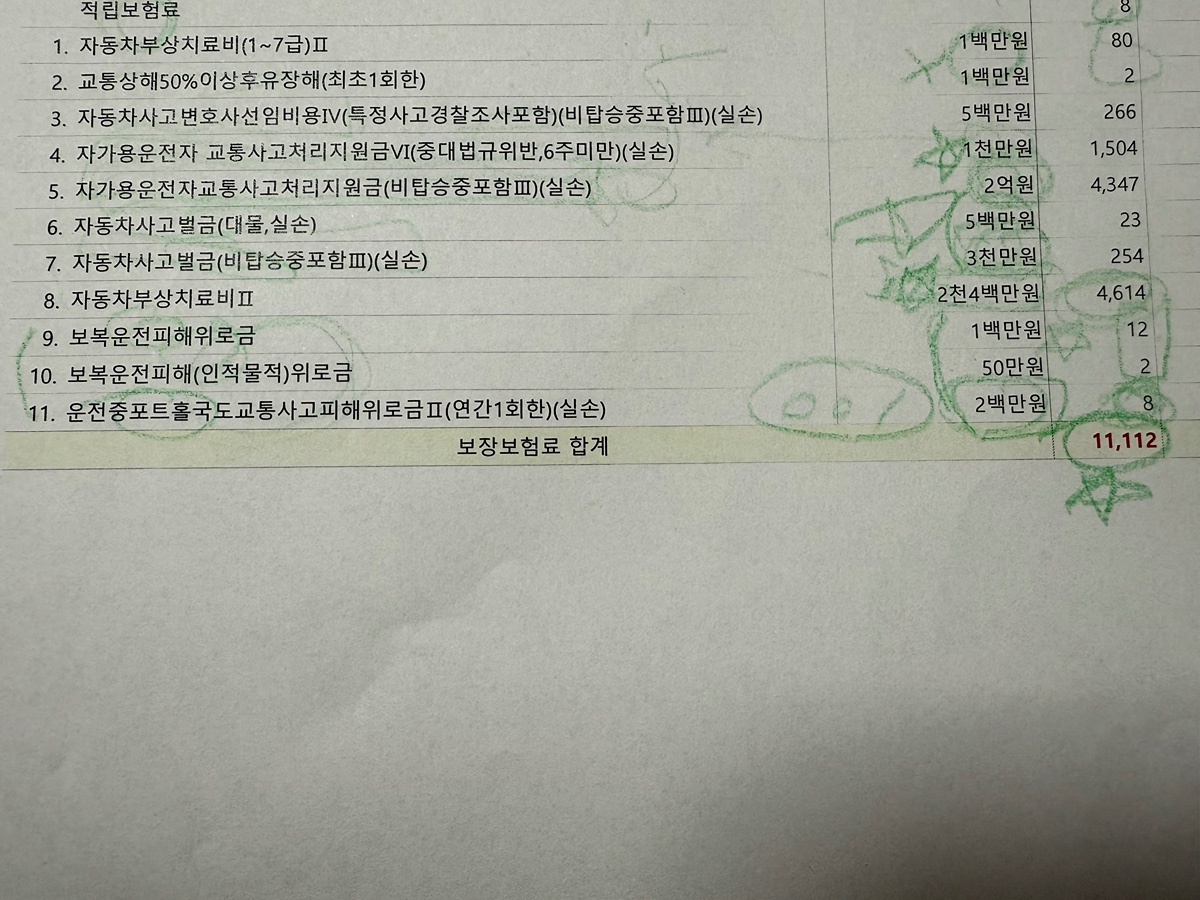 적립보험료 8
1. 자동차부상치료비(1~7급)Ⅱ 1백만원 80
2. 교통상해50%이상후유장해(최초1회한) 1백만원 2
3. 자동차사고변호사선임비용Ⅳ(특정사고경찰조사포함)(비탑승중포함Ⅲ)(실손) 5백만원 266
4. 자가용운전자 교통사고처리지원금Ⅵ(중대법규위반,6주미만)(실손) 1천만원 1,504
5. 자가용운전자교통사고처리지원금(비탑승중포함Ⅲ)(실손) 2억원 4,347
6. 자동차사고벌금(대물,실손) 5백만원 23
7. 자동차사고벌금(비탑승중포함Ⅲ)(실손) 3천만원 254
8. 자동차부상치료비Ⅱ 2천4백만원 4,614
9. 보복운전피해위로금 1백만원 12
10. 보복운전피해(인적물적)위로금 50만원 2
11. 운전중포트홀국도교통사고피해위로금Ⅱ(연간1회한)(실손) 2백만원 8
보장보험료 합계 11,112